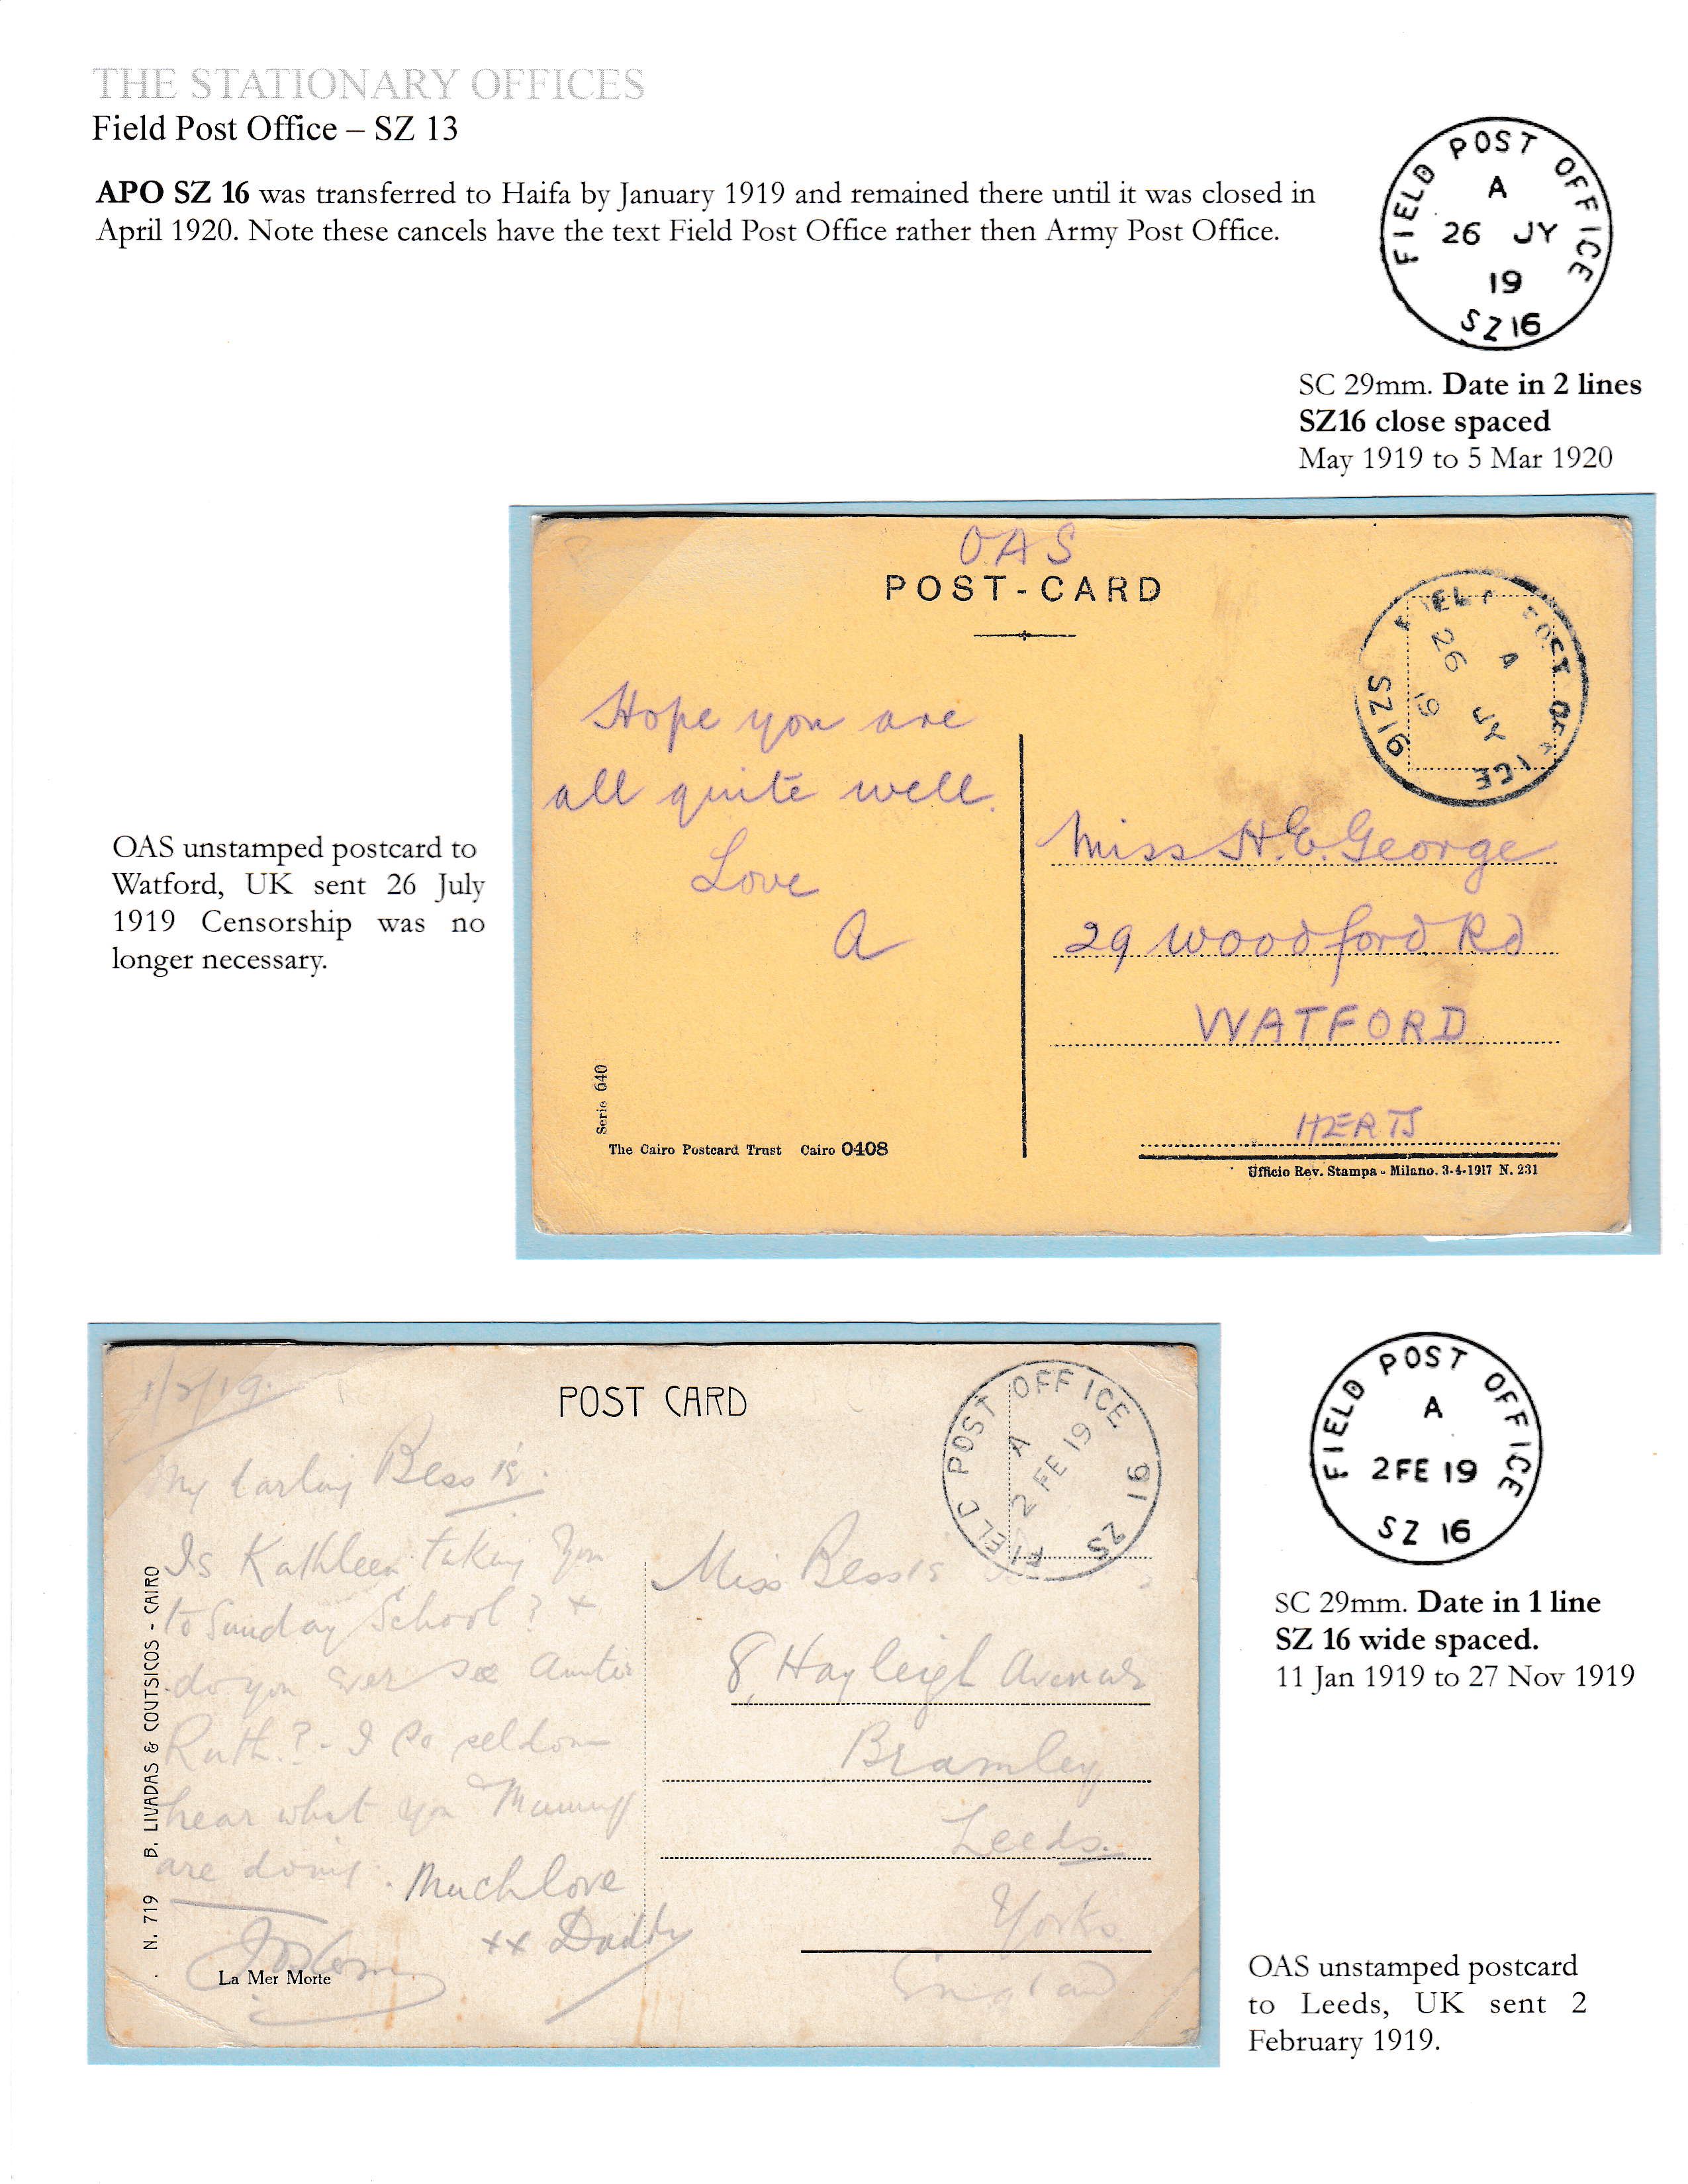 THE STATIONARY OFFICES
Field Post Office – SZ 13
APO SZ 16 was transferred to Haifa by January 1919 and remained there until it was closed in
April 1920. Note these cancels have the text Field Post Office rather then Army Post Office.
FIELD POST OFFICE
A
26 JY
19
SZ16
SC 29mm. Date in 2 lines
SZ16 close spaced
May 1919 to 5 Mar 1920
OAS
POST-CARD
FIELD POST OFFICE
A
26 JY
19
SZ16
Hope you are
all quite well.
Love
A
Miss H.E. George
29 Woodford Rd
WATFORD
HERTS
Serie 640
The Cairo Postcard Trust Cairo 0408
Ufficio Rev. Stampa - Milano. 3-4-1917 N. 231
OAS unstamped postcard to
Watford, UK sent 26 July
1919 Censorship was no
longer necessary.
1/2/19.
POST CARD
FIELD POST OFFICE
A
2 FE 19
SZ 16
My darling Bessie.
Is Kathleen taking you
to Sunday School? +
do you ever see Auntie
Ruth? - I so seldom
hear what you Mummy
are doing. Much love
xx Daddy
Miss Bessie
8, Hayleigh Avenue
Bramley
Leeds.
Yorks.
England
N. 719 B. LIVADAS & COUTSICOS - CAIRO
La Mer Morte
FIELD POST OFFICE
A
2FE 19
SZ 16
SC 29mm. Date in 1 line
SZ 16 wide spaced.
11 Jan 1919 to 27 Nov 1919
OAS unstamped postcard
to Leeds, UK sent 2
February 1919.